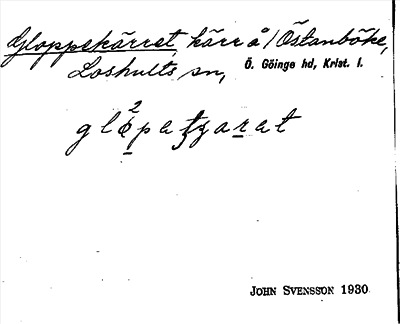 Gloppekärret, kärr å / Östanböke,
Loshults sn, Ö. Göinge hd, Krist. l.
glǿ²patʒarat
JOHN SVENSSON 1930